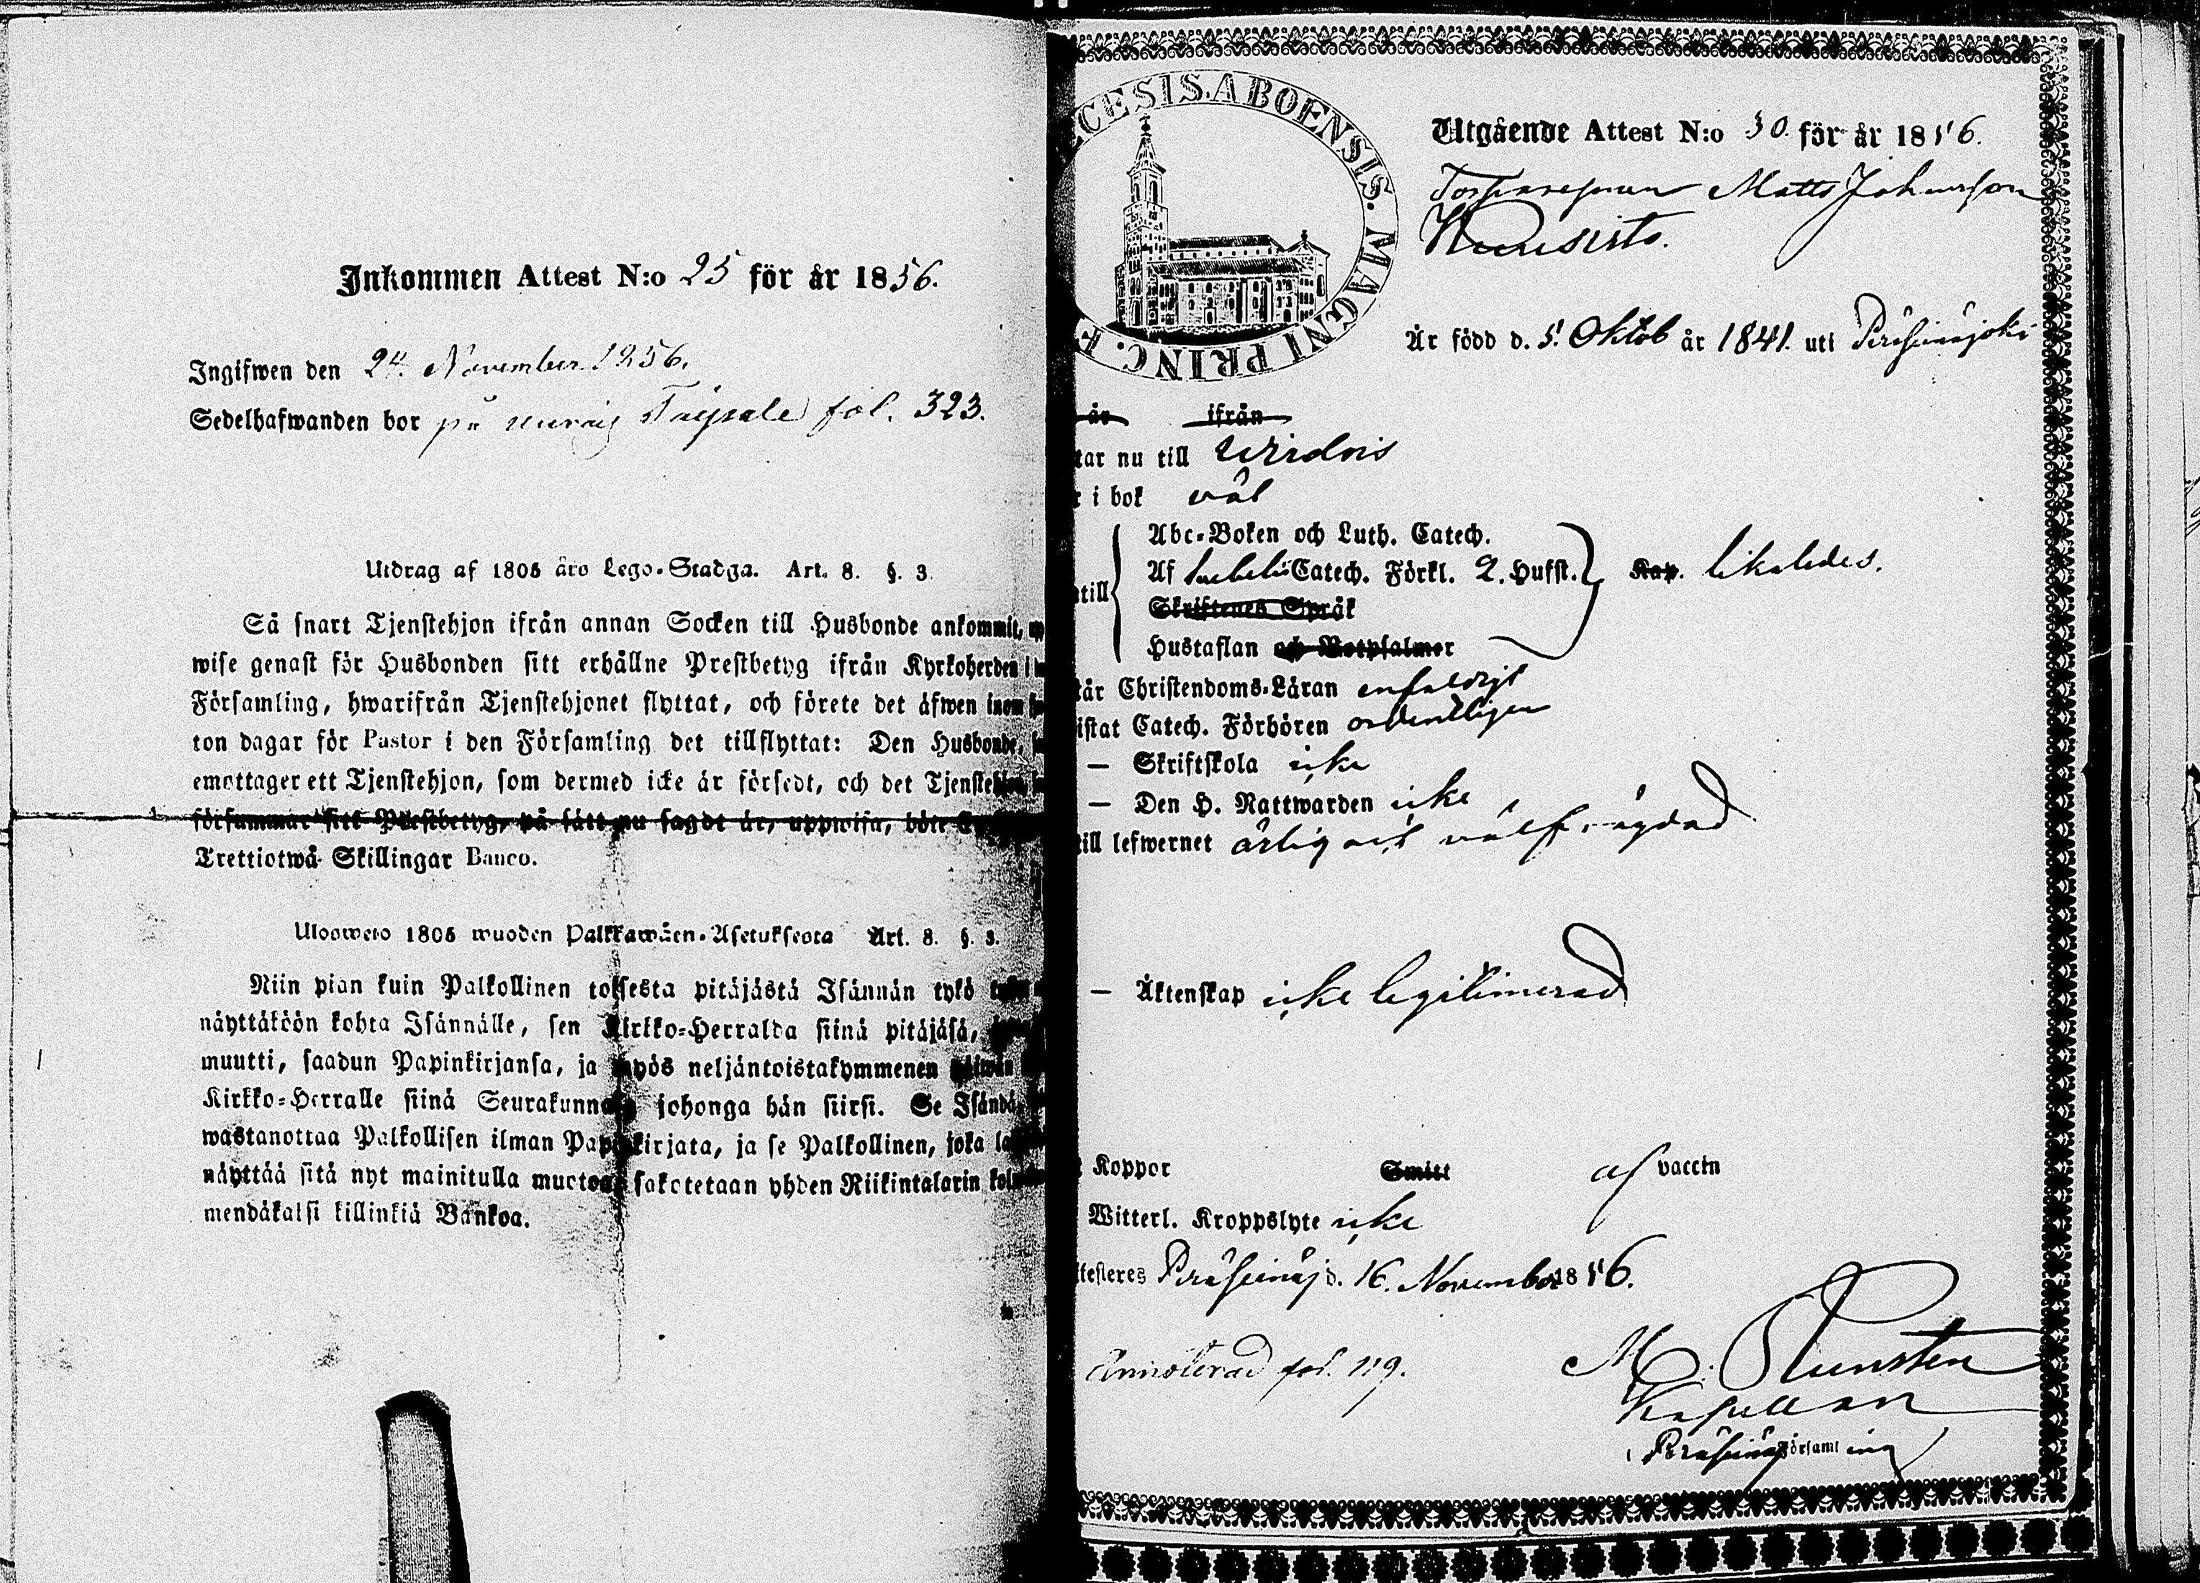 Inkommen Attest N:o 25 för år 1856.
Ingifwen den 24. November 1856.
Sedelhafwanden bor på Taipale fol. 323.
Utdrag af 1805 års Lego-Stadga. Art. 8. §. 3
Så snart Tjenstehjon ifrån annan Socken till Husbonde ankommit,
wise genast för Husbonden sitt erhållne Prestbetyg ifrån Kyrkoherden i
Församling, hwarifrån Tjenstehjonet flyttat, och förete det äfwen inom
ton dagar för Pastor i den Församling det tillflyttat: Den Husbonde,
emottager ett Tjenstehjon, som dermed icke är försedt, och det
försummar sitt Prestbetyg, på sätt nu sagdt är, uppwisa, böte
Trettiotwå Skillingar Banco.
Ulosweto 1805 wuoden Palkkawäen-Asetuksesta Art. 8. §. 3.
Niin pian kuin Palkollinen toisesta pitäjästä Isännän tykö
näyttäköön kohta Isännälle, sen Kirkko-Herralda siinä pitäjäsä,
muutti, saadun Papinkirjansa, ja myös neljäntoistakymmenen
Kirkko-Herralle siinä Seurakunnasa johonga hän siirsi. Se Isändä,
wastanottaa Palkollisen ilman Papinkirjata, ja se Palkollinen, joka
näyttää sitä nyt mainitulla muotoa, sakotetaan yhden Riikintalarin
mendäkaisi killinkiä Bankoa.
CESIS. ABOENSIS. MAGNI PRINC. F
Utgående Attest N:o 30. för år 1856.
Matts Johansson
Är född d. 5. Oktob år 1841. uti Peräseinäjoki
år ifrån
tar nu till Wirdois
r i bok väl
Abc-Boken och Luth. Catech.
till Af Catech. Förkl. 2. Hufst. Kap. likaledes.
Skriftenes Språk
Hustaflan och Botpsalmer
tår Christendoms-Läran enfaldigt
istat Catech. Förhören ordentligen
— Skriftskola icke
— Den H. Nattwarden icke
till lefwernet ärlig och välfrägdad
— Äktenskap icke legitimerad
Koppor Smitt af vaccin
Witterl. Kroppslyte icke
ttesteres Peräseinäj d. 16. November 1856.
Annoterad fol. 119.
M. Runsten
Kapellan
Peräseinäj Församling